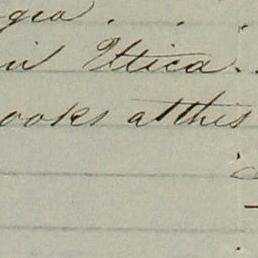 gia . . .
in Uttica. .
ooks at this